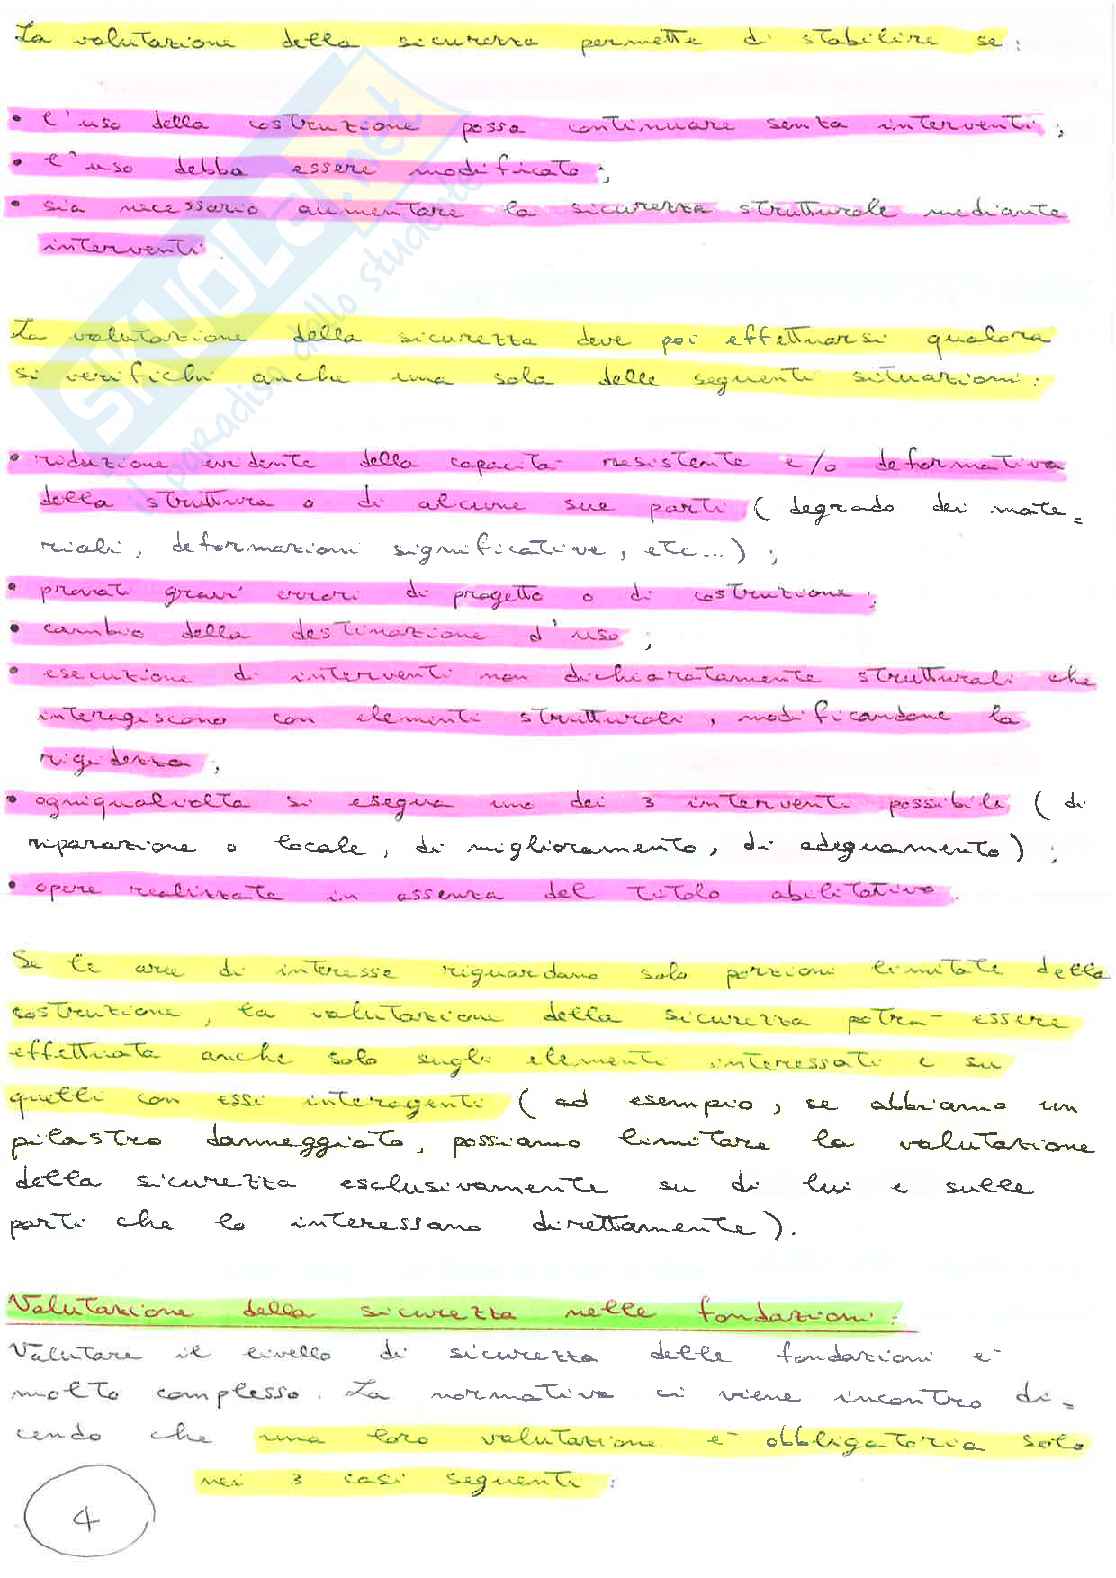 La valutazione della sicurezza permette di stabilire se:
• l'uso della costruzione possa continuare senza interventi;
• l'uso debba essere modificato;
• sia necessario aumentare la sicurezza strutturale mediante
interventi.
La valutazione della sicurezza deve poi effettuarsi qualora
si verifichi anche una sola delle seguenti situazioni:
• riduzione evidente della capacità resistente e/o deformativa
della struttura o di alcune sue parti (degrado dei mate=
riali, deformazioni significative, etc...);
• provati gravi errori di progetto o di costruzione;
• cambio della destinazione d'uso;
• esecuzione di interventi non dichiaratamente strutturali che
interagiscono con elementi strutturali, modificandone la
rigidezza;
• ogniqualvolta si esegua uno dei 3 interventi possibili (di
riparazione o locale, di miglioramento, di adeguamento);
• opere realizzate in assenza del titolo abilitativo.
Se le aree di interesse riguardano solo porzioni limitate della
costruzione, la valutazione della sicurezza potrà essere
effettuata anche solo sugli elementi interessati e su
quelli con essi interagenti (ad esempio, se abbiamo un
pilastro danneggiato, possiamo limitare la valutazione
della sicurezza esclusivamente su di lui e sulle
parti che lo interessano direttamente).
Valutazione della sicurezza nelle fondazioni:
Valutare il livello di sicurezza delle fondazioni è
molto complesso. La normativa ci viene incontro di=
cendo che una loro valutazione è obbligatoria solo
nei 3 casi seguenti:
4
SKUOLA.net
il paradiso dello studente